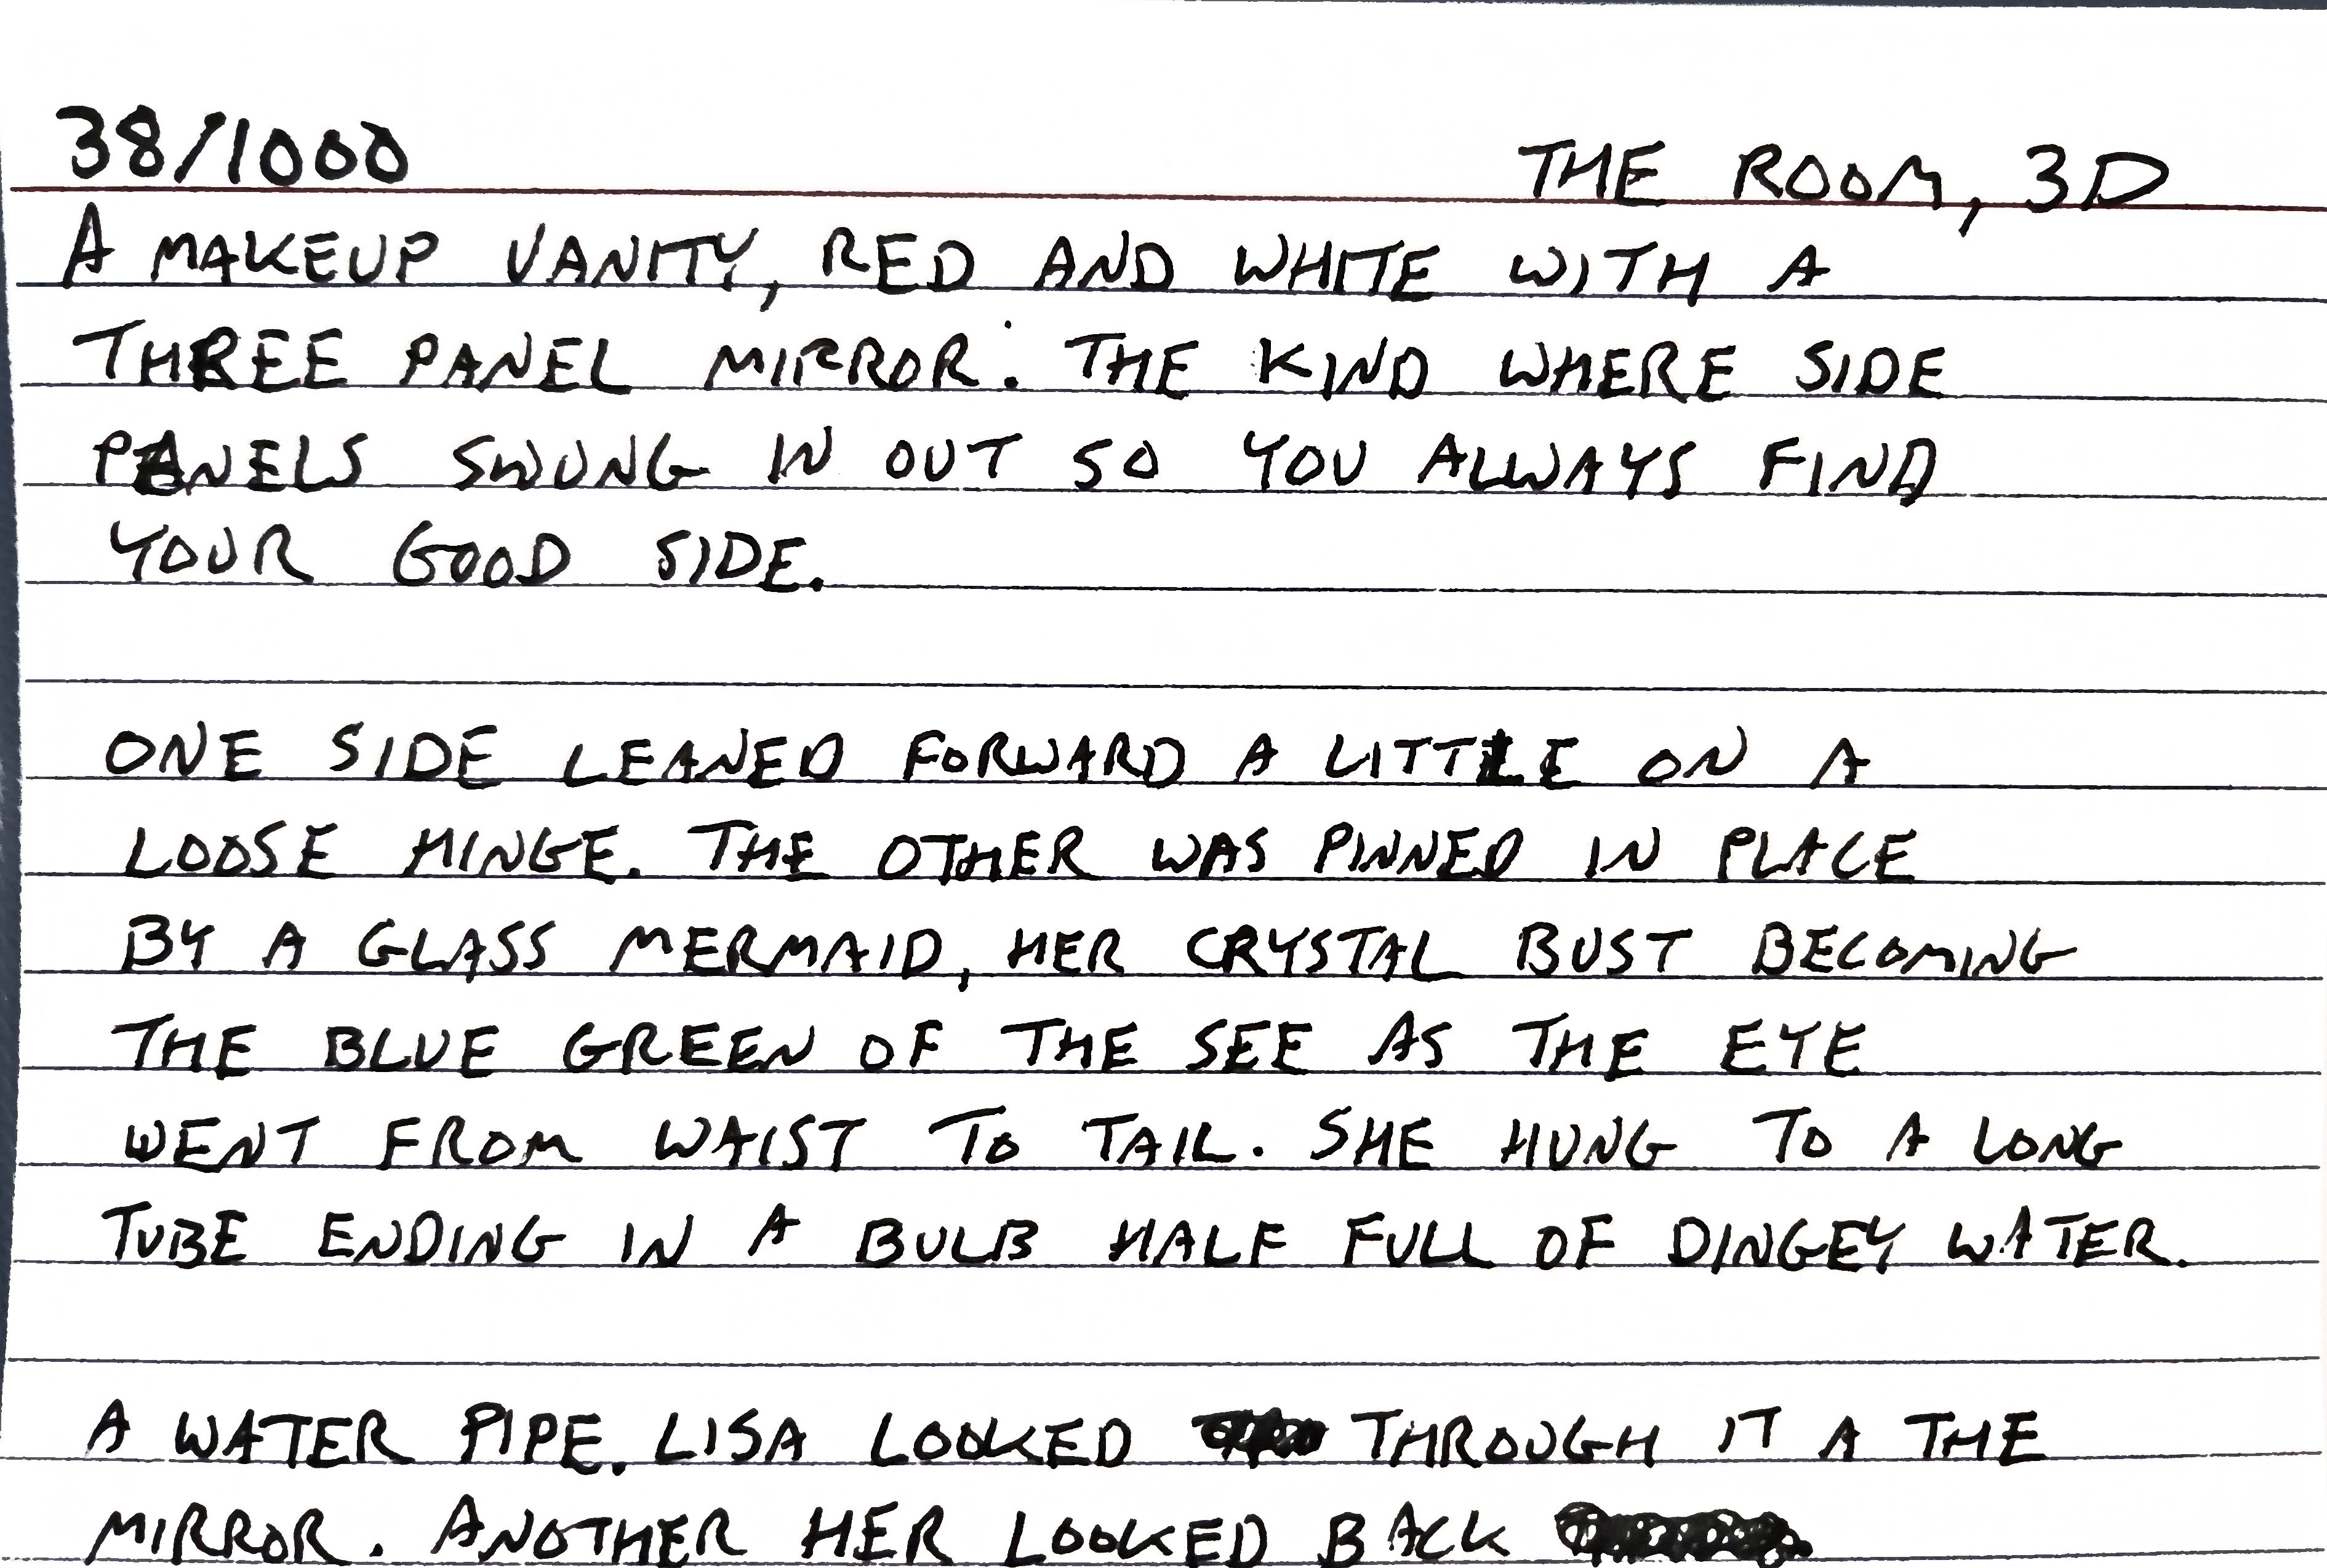 38/1000
THE ROOM, 3D
A MAKEUP VANITY, RED AND WHITE WITH A
THREE PANEL MIRROR. THE KIND WHERE SIDE
PANELS SWUNG IN OUT SO YOU ALWAYS FIND
YOUR GOOD SIDE.
ONE SIDE LEANED FORWARD A LITTLE ON A
LOOSE HINGE. THE OTHER WAS PINNED IN PLACE
BY A GLASS MERMAID, HER CRYSTAL BUST BECOMING
THE BLUE GREEN OF THE SEE AS THE EYE
WENT FROM WAIST TO TAIL. SHE HUNG TO A LONG
TUBE ENDING IN A BULB HALF FULL OF DINGEY WATER.
A WATER PIPE. LISA LOOKED THROUGH IT A THE
MIRROR. ANOTHER HER LOOKED BACK